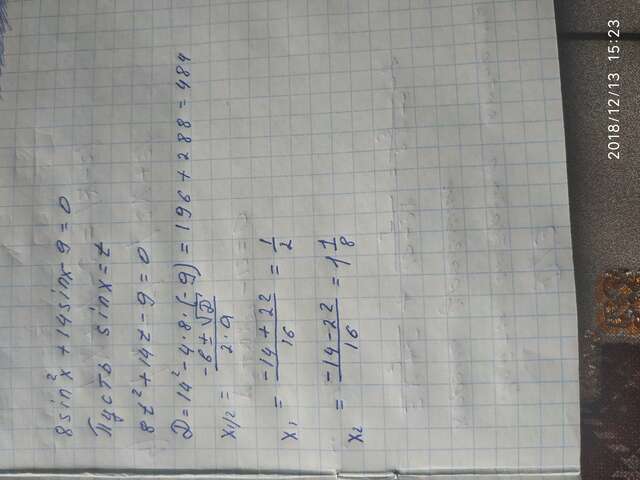 8sin²x + 14sinx - 9 = 0
Пусть sinx = t
8t² + 14t - 9 = 0
D = 14² - 4·8·(-9) = 196 + 288 = 484
x₁/₂ = (-b ± √D)/(2·a)
x₁ = (-14 + 22)/16 = 1/2
x₂ = (-14 - 22)/16 = 1 1/8
2018/12/13 15:23